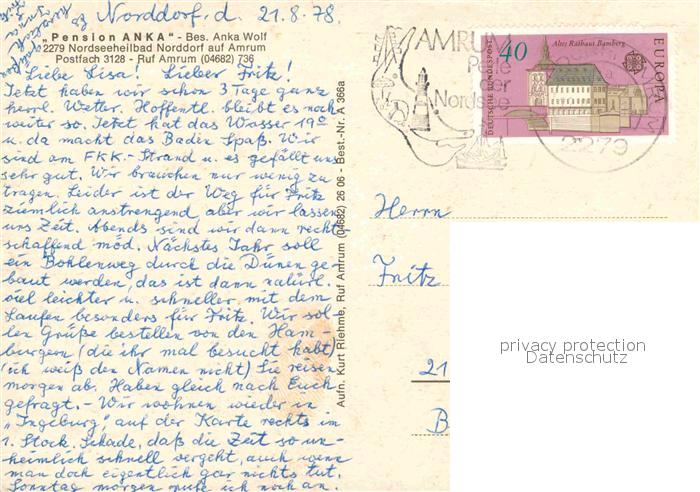 Norddorf, d. 21.8.78.
„Pension ANKA" - Bes. Anka Wolf
2279 Nordseeheilbad Norddorf auf Amrum
Postfach 3128 - Ruf Amrum (04682) 736
Liebe Lisa! Lieber Fritz!
Jetzt haben wir schon 3 Tage ganz
herrl. Wetter. Hoffentl. bleibt es noch
weiter so. Jetzt hat das Wasser 19°
u. da macht das Baden Spaß. Wir
sind am FKK.-Strand u. es gefällt uns
sehr gut. Wir brauchen nur wenig zu
tragen. Leider ist der Weg für Fritz
ziemlich anstrengend, aber wir lassen
uns Zeit. Abends sind wir dann recht-
schaffend müd. Nächstes Jahr soll
ein Bohlenweg durch die Dünen ge-
baut werden, das ist dann natürl.
viel leichter u. schneller, mit dem
Laufen besonders für Fritz. Wir sol-
len Grüße bestellen von den Ham-
burgern (die ihr mal besucht habt)
(ich weiß den Namen nicht) Sie reisen
morgen ab. Haben gleich nach Euch
gefragt. - Wir wohnen wieder in
"Ingeburg", auf der Karte rechts im
1. Stock. Schade, daß die Zeit so un-
heimlich schnell vergeht, auch wenn
man doch eigentlich gar nichts tut.
Sonntag morgen rufe ich noch an.
Aufn. Kurt Riehme, Ruf Amrum (04682) 26 06 - Best.-Nr. A 366a
AMRUM
Perle
der
Nordsee
40
Altes Rathaus Bamberg
DEUTSCHE BUNDESPOST
EUROPA
Herrn
Fritz
21
B
privacy protection
Datenschutz